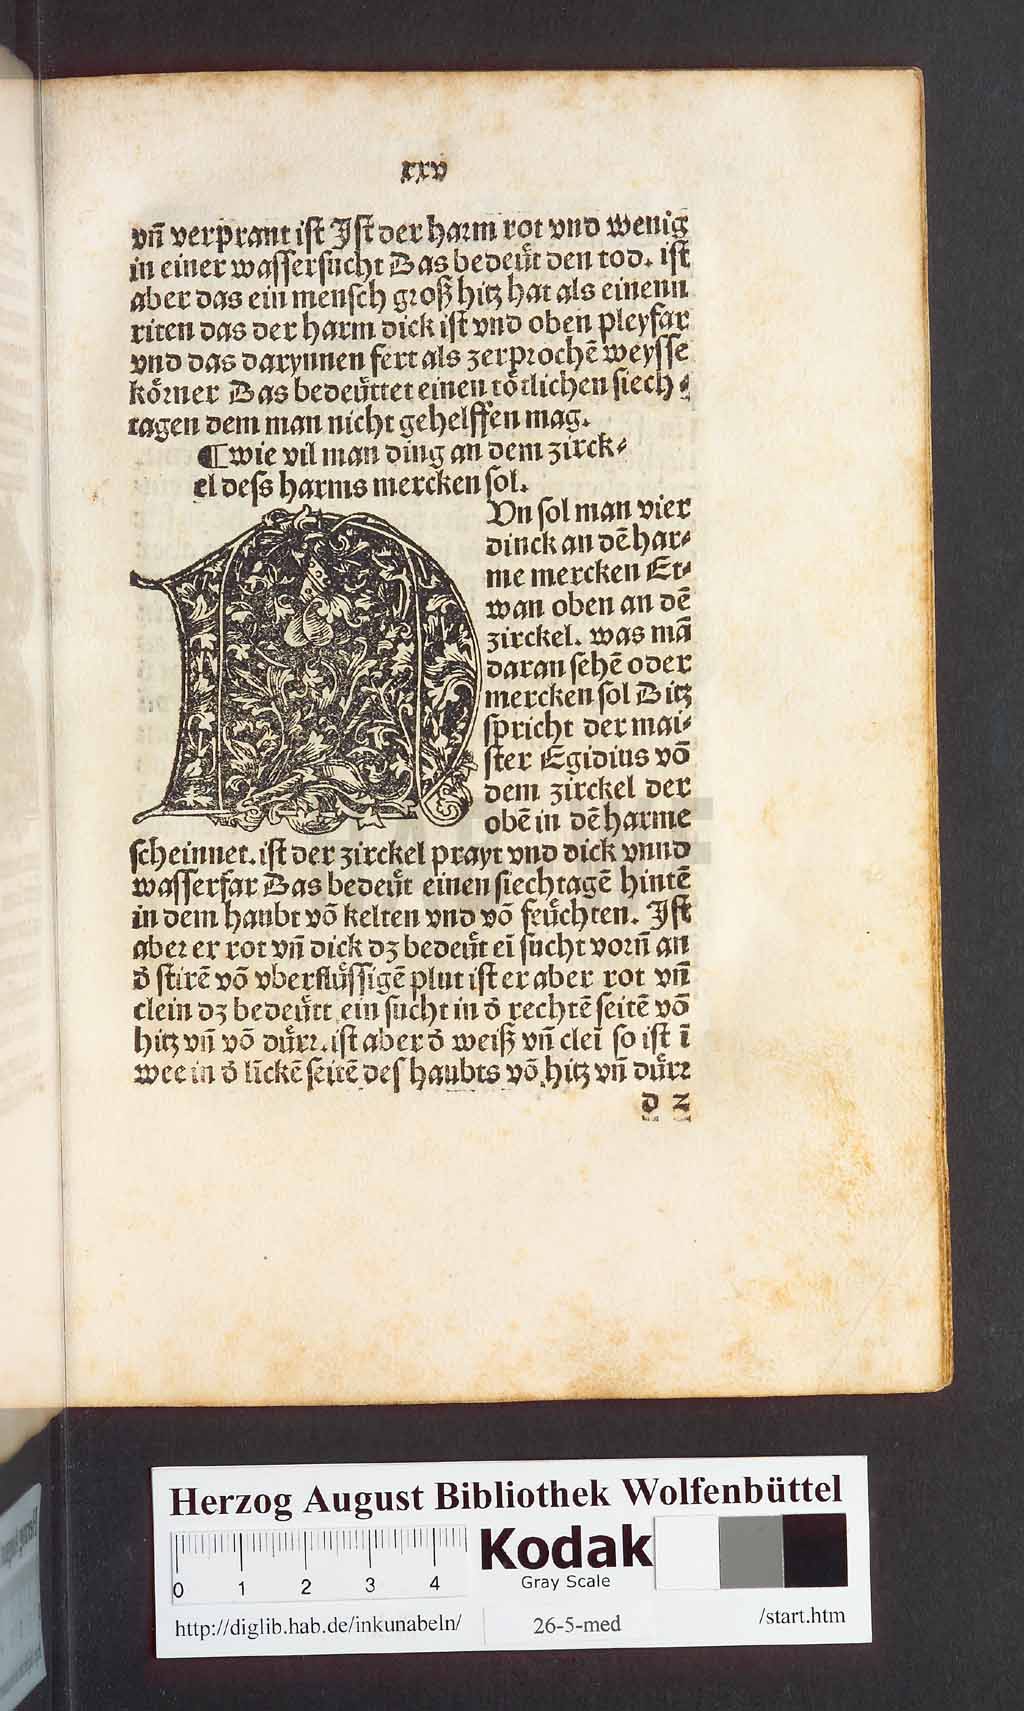 xxv
vñ verprant ist Jst der harm rot vnd wenig
in einer wassersucht Das bedeüt den tod. ist
aber das ein mensch groß hitz hat als einenn
riten das der harm dick ist vnd oben pleyfar
vnd das darynnen fert als zerprochē weysse
körner Das bedeüttet einen tötlichen siech⸗
tagen dem man nicht gehelffen mag.
¶ wie vil man ding an dem zirck⸗
el dess harms mercken sol.
NVn sol man vier
dinck an dē har⸗
me mercken Et⸗
wan oben an dē
zirckel. was mā
daran sehē oder
mercken sol Ditz
spricht der mai⸗
ster Egidius vō
dem zirckel der
obē in dē harme
scheinnet. ist der zirckel prayt vnd dick vnnd
wasserfar Das bedeüt einen siechtagē hintē
in dem haubt vō kelten vnd vō feüchten. Jst
aber er rot vñ dick dz bedeüt eī sucht vorñ an
d̄ stirē vō vberflüssigē plut ist er aber rot vñ
clein dz bedeütt ein sucht in d̄ rechtē seitē vō
hitz vñ vō dürr. ist aber d̄ weiß vñ cleī so ist ī
wee in d̄ līckē seitē des haubts vō hitz vñ dürr
d 2
Herzog August Bibliothek Wolfenbüttel
0 1 2 3 4
Kodak
Gray Scale
http://diglib.hab.de/inkunabeln/ 26-5-med /start.htm